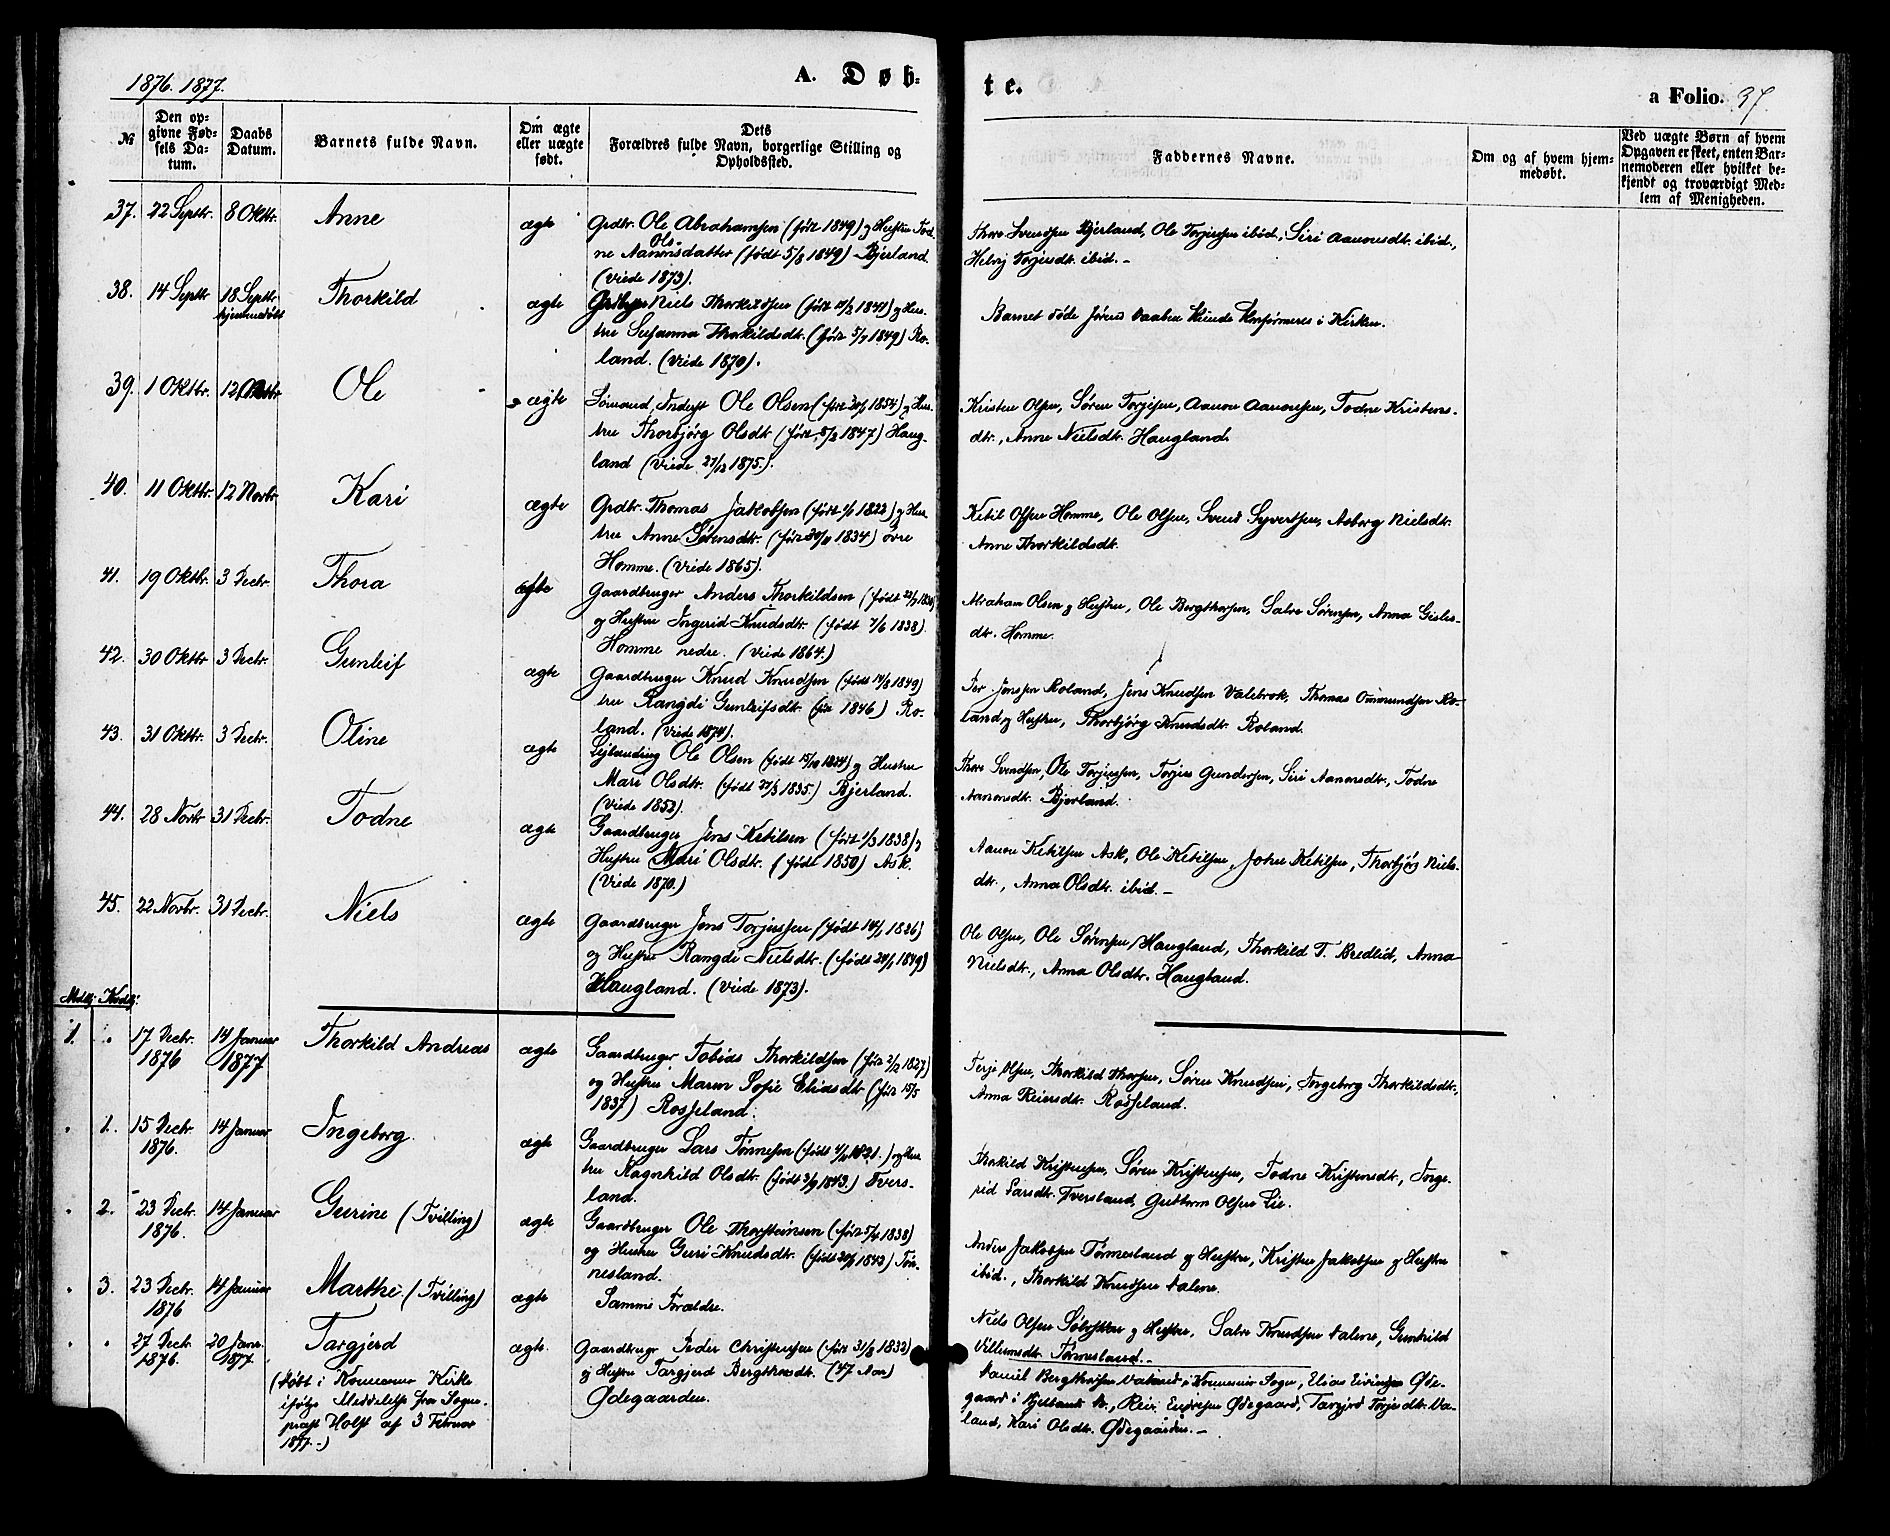 1876. 1877.
A. Døb-
te.
a Folio. 37.
№
Den op-
givne Fød-
sels Da-
tum.
Daabs
Datum.
Barnets fulde Navn.
Om ægte
eller uægte
født.
Dets
Forældres fulde Navn, borgerlige Stilling og
Opholdssted.
Faddernes Navne.
Om og af hvem hjem-
medøbt.
Ved uægte Børn af hvem
Opgaven er skeet, enten Bar-
nemoderen eller hvilket be-
kjendt og troværdigt Med-
lem af Menigheden.
37. 22 Septr. 8 Oktbr. Anne ægte
Grdbr. Ole Abrahamsen (født 1849) og Hustru Tod-
ne Ols- datter (født 5/8 1849) Bjerland.
(viede 1873).
Thore Svendsen Bjerland, Ole Torjussen ibid., Siri Aanonsdtr. ibid.,
Helvig Torjusdtr. ibid. -
38. 14 Septr 18 Septr Thorkild ægte
hjemmedøbt
Niels Thorkildsen (født 1841) og Hus-
tru Susanna Thorkildsdtr. (født 5/7 1849) Ro-
land. (viede 1870).
Barnet døde førend Daaben kunde konfirmeres i Kirken.
39. 1 Oktbr. 12 Oktbr Ole ægte
Sømand, Inderst Ole Olsen (født 1854) og Hus-
tru Thorbjørg Olsdtr. (født 1847) Haug-
land (viede 27/12 1875).
Kristen Olsen, Søren Torgisen, Aanon Aanonsen, Todne Kristens-
dtr., Anne Nielsdtr. Haugland.
40. 11 Oktbr. 12 Novbr. Kari ægte
Grdbr. Thomas Jakobsen (født 1822) og Hus-
tru Anne Sørensdtr. (født 1834) øvre
Homme. (viede 1865).
Ketil Olsen Homme, Ole Olsen, Svend Syvertsen, Asborg Nielsdtr.
Anne Thorkildsdtr.
41. 19 Oktbr. 3 Decbr. Thora ægte
Gaardbruger Anders Thorkildsen (født
og Hustru Ingerid Knudsdtr. (født 7/6 1838).
Homme nedre. (viede 1864.)
Abraham Olsen og Hustru, Ole Bergthorsen, Salve Sørensen, Anna Gisles-
dtr. Homme.
42. 30 Oktbr 3 Decbr. Gunleif ægte
Gaardbruger Knud Knudsen (født 1849)
tru Rangdi Gunleifsdtr. (født 1846) Ro-
land. (viede 1874).
Per Jensen Roland, Jens Knudsen Valebrok, Thomas Omundsen Ro-
land og Hustru, Thorbjørg Knudsdtr. Roland.
43. 31 Oktbr. 3 Decbr. Oline ægte
Leilænding Ole Olsen (født 1824) og Hustru
Mari Olsdtr. (født 1835.) Bjerland.
(viede 1852).
Thore Svendsen, Ole Torjussen, Torjus Gundersen, Siri Aanonsdtr., Todne
Aanonsdtr. Bjerland.
44. 28 Novbr 31 Decbr. Todne ægte
Gaardbruger Jens Ketilsen (født 1/3 1838) og
Hustru Mari Olsdtr. (født 1850) Ask.
(viede 1870.)
Aanon Ketilsen Ask, Ole Ketilsen, John Ketilsen, Thorbjørg Niels-
dtr., Anna Olsdtr. ibid. -
45. 22 Novbr. 31 Decbr. Niels ægte
Gaardbruger Jens Torjussen (født 1836)
og Hustru Rangdi Nielsdtr. (født 1849)
Haugland. (viede 1873).
Ole Olsen, Ole Sørensen Haugland, Thorkild T. Bredlid, Anna
Nielsdtr., Anna Olsdtr. Haugland.
Mdkj. Kvdkj.
1. 17 Decbr. 14 Januar Thorkild Andreas ægte
1876 1877
Gaardbruger Tobias Thorkildsen (født 2/2 1827)
og Hustru Maren Sofie Eliasdtr. (født 15/5
1837) Rosseland.
Terje Olsen, Thorkild Thorsen, Søren Knudsen, Ingeborg Thorkildsdtr.,
Anna Reiersdtr. Rosseland.
1. 15 Decbr. 14 Januar Ingeborg. ægte
1876.
Gaardbruger Lars Tønnesen (født 1821.) og Hus-
tru Ragnhild Olsdtr. (født 1843.) Tvers-
land.
Thorkild Kristensen, Søren Kristensen, Todne Kristensdtr., Inge-
rid Larsdtr. Tversland, Guttorm Olsen Lie.
2. 23 Decbr. 14 Januar Gurine (Tvilling) ægte
1876.
Gaardbruger Ole Thorsteinsen (født 5/4 1838)
og Hustru Guri Knudsdtr. (født 1843) Tøn-
nesland.
Anders Jakobsen Tønnesland og Hustru, Kristen Jakobsen og Hustru
ibid., Thorkild Knudsen
3. 23 Decbr. 14 Januar Marthe. (Tvilling) ægte
1876
Samme Forældre.
Niels Olsen og Hustru, Salve Knudsen Gunhild
Villumsdtr. Tønnesland. -
27 Decbr 20 Janr. Targjerd ægte.
1876. 1877.
(døbt i Konsmo Kirke
ifølge Meddelelse fra Sogne-
præst Holst af 3 Februar
1877.)
Gaardbruger Peder Christensen (født 31/8 1832)
og Hustru Targjerd Bergthorsdtr. (47 Aar)
Ødegaarden.
Daniel Bergthorsen Valand i Konsmo Sogn, Elias Eivindsen Øde-
gaard i Reier Endresen Ødegaard, Targjerd Torjusdtr. Va-
land, Kari Olsdtr. Ødegaarden. -